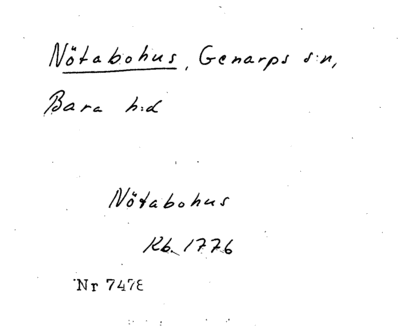 Nötabohus, Genarps s:n,
Bara h:d
Nötabohus
Kb. 1776
Nr 7478